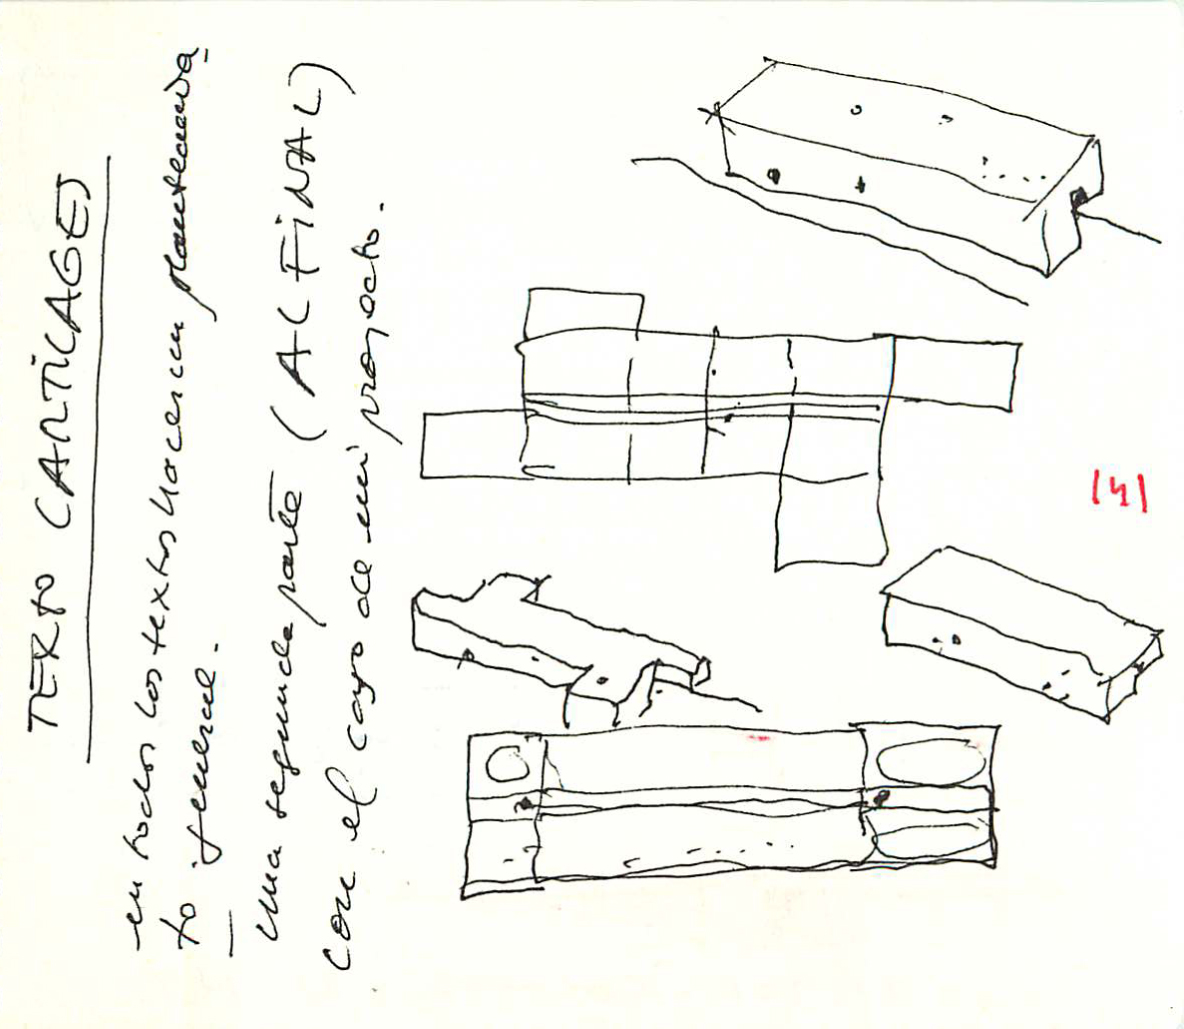 TEXTO CARTILAGES
-en todos los textos hacer un planteamien-
to general.
— una segunda parte (AL FINAL)
con el caso de mi proyecto.
(4)